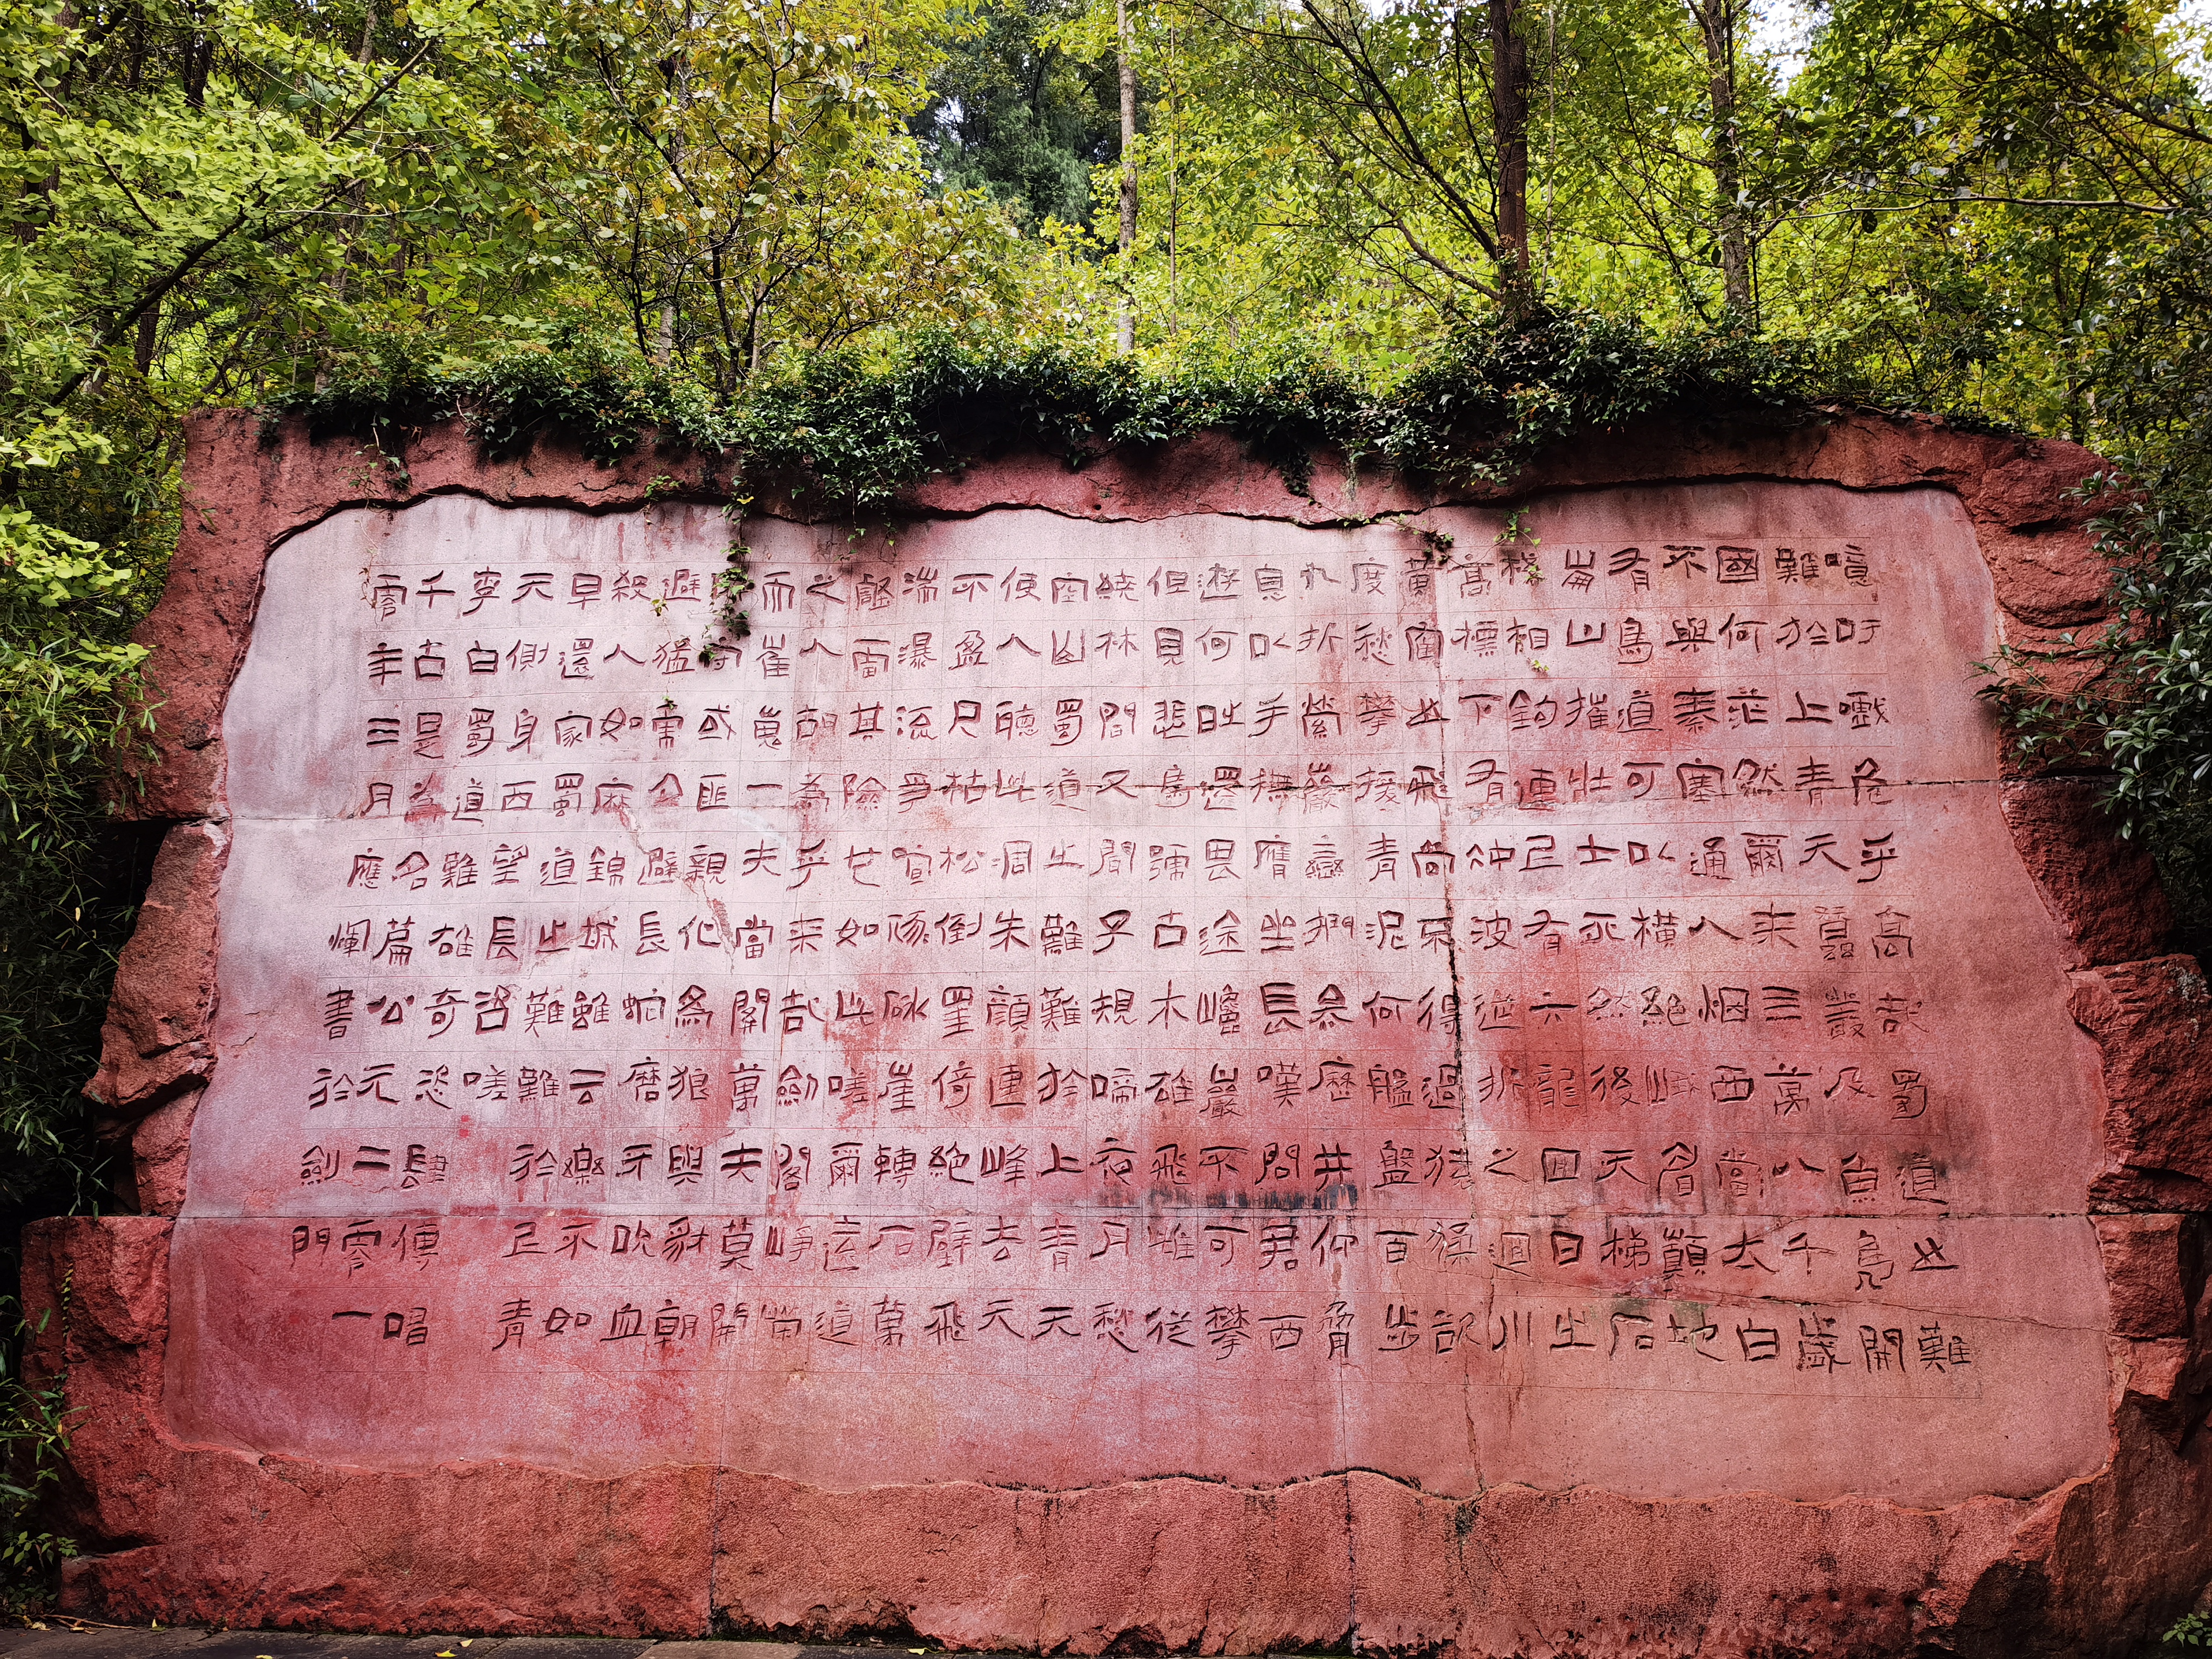 噫吁嚱危乎高哉蜀道之難
難於上青天蠶叢及魚鳧開
國何茫然爾來三萬八千歲
不與秦塞通人烟西當太白
有鳥道可以橫絕峨眉巔地
崩山摧壯士死然後天梯石
棧相鉤連上有六龍回日之
高標下有衝波逆折之迴川
黃鶴之飛尚不得過猿猱欲
度愁攀援青泥何盤盤百步
九折縈巖巒捫參歷井仰脅
息以手撫膺坐長嘆問君西
遊何時還畏途巉巖不可攀
但見悲鳥號古木雄飛雌從
繞林間又聞子規啼夜月愁
空山蜀道之難難於上青天
使人聽此凋朱顏連峰去天
不盈尺枯松倒罣倚絕壁飛
湍瀑流爭喧豗砯崖轉石萬
壑雷其險也如此嗟爾遠道
之人胡為乎來哉劍閣崢嶸
而崔嵬一夫當關萬夫莫開
所守或匪親化為狼與豺朝
避猛虎夕避長蛇磨牙吮血
殺人如麻錦城雖云樂不如
早還家蜀道之難難於上青
天側身西望長咨嗟
李白蜀道難雄奇恣肆傳唱
千古是為名篇公元二零一
零年三月應煇書於劍門